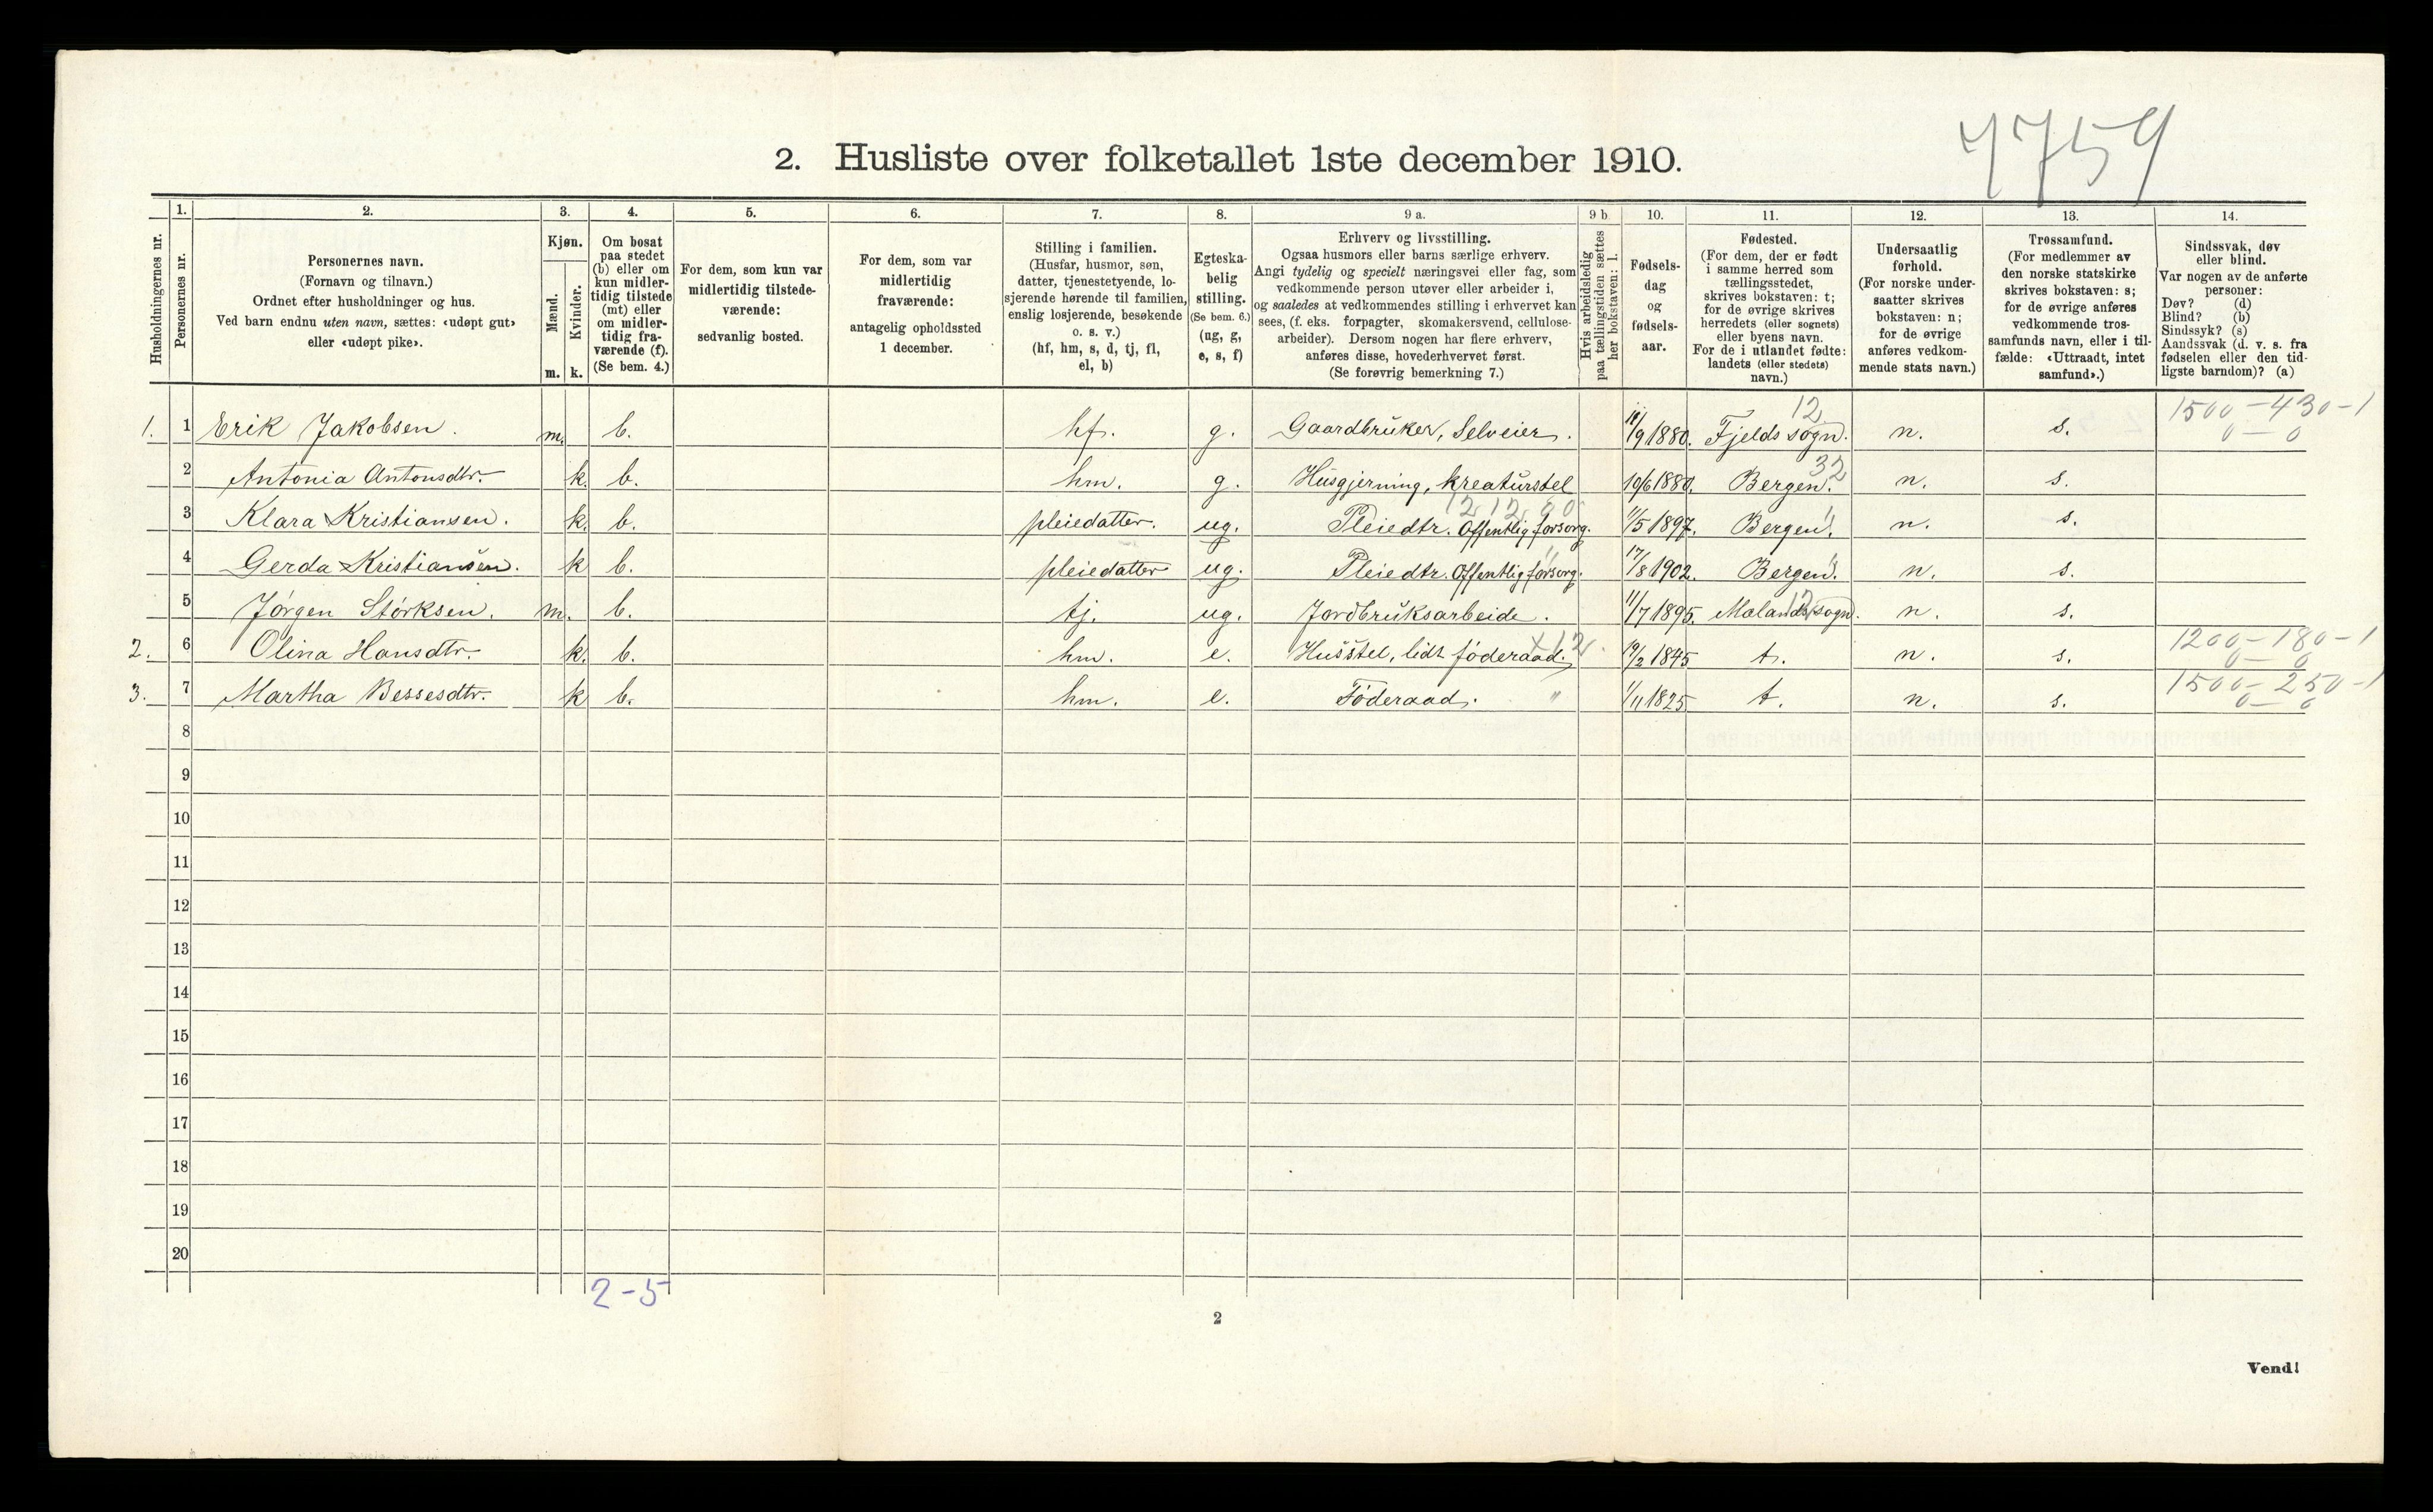 7759
2. Husliste over folketallet 1ste december 1910.
1. 2. 3. 4. 5. 6. 7. 8. 9 a. 9 b 10. 11. 12. 13. 14.
Husholdningernes nr.
Personernes nr.
Personernes navn.
(Fornavn og tilnavn.)
Ordnet efter husholdninger og hus.
Ved barn endnu uten navn, sættes: «udøpt gut»
eller «udøpt pike».
Kjøn.
Mænd.
Kvinder.
m. k.
Om bosat
paa stedet
(b) eller om
kun midler-
tidig tilstede
(mt) eller
om midler-
tidig fra-
værende (f).
(Se bem. 4.)
For dem, som kun var
midlertidig tilstede-
værende:
sedvanlig bosted.
For dem, som var
midlertidig
fraværende:
antagelig opholdssted
1 december.
Stilling i familien.
(Husfar, husmor, søn,
datter, tjenestetyende, lo-
sjerende hørende til familien,
enslig losjerende, besøkende
o. s. v.)
(hf, hm, s, d, tj, fl,
el, b)
Egteska-
belig
stilling.
(Se bem. 6.)
(ug, g,
e, s, f)
Erhverv og livsstilling.
Ogsaa husmors eller barns særlige erhverv.
Angi tydelig og specielt næringsvei eller fag, som
vedkommende person utøver eller arbeider i,
og saaledes at vedkommendes stilling i erhvervet kan
sees, (f. eks. forpagter, skomakersvend, cellulose-
arbeider). Dersom nogen har flere erhverv,
anføres disse, hovederhvervet først.
(Se forøvrig bemerkning 7.)
Hvis arbeidsledig
paa tællingstiden sættes
her bokstaven: l.
Fødsels-
dag
og
fødsels-
aar.
Fødested.
(For dem, der er født
i samme herred som
tællingsstedet,
skrives bokstaven: t;
for de øvrige skrives
herredets (eller sognets)
eller byens navn.
For de i utlandet fødte:
landets (eller stedets)
navn.)
Undersaatlig
forhold.
(For norske under-
saatter skrives
bokstaven: n;
for de øvrige
anføres vedkom-
mende stats navn.)
Trossamfund.
(For medlemmer av
den norske statskirke
skrives bokstaven: s;
for de øvrige anføres
vedkommende tros-
samfunds navn, eller i til-
fælde: «Uttraadt, intet
samfund».)
Sindssvak, døv
eller blind.
Var nogen av de anførte
personer:
Døv? (d)
Blind? (b)
Sindssyk? (s)
Aandssvak (d. v. s. fra
fødselen eller den tid-
ligste barndom)? (a)
12 1500-430-1
1. 1 Erik Jakobsen. m. b. hf. g. Gaardbruker, Selveier. /9 1880. Fjelds sogn. n. s. 0-0
32
2 Antonia Antonsdtr. k. b. hm. g. Husgjerning, kreaturstel 10/6 1880. Bergen. n. s.
12 12
3 Klara Kristiansen. k. b. pleiedatter. ug. Pleiedtr. Offentlig forsorg. /5 1897. Bergen. " n. s.
4 Gerda Kristiansen. k b. pleiedatter ug. Pleiedtr. Offentlig forsorg. " 17/8 1902. Bergen. " n. s.
12
5 Jørgen Størksen. m. b. tj. ug. Jordbruksarbeide. 11/7 1895. sogn. n. s.
x12. 1200-180-1
2. 6 Olina Hansdtr. k. b. hm. e. Husstel, lidt føderaad. /2 1845 t. n. s. 0-0
1500-250-1
3. 7 Martha Bessesdtr. k b. hm. e. Føderaad. " 1/11 1825. t. n. s. 0-0
8
9
10
11
12
13
14
15
16
17
18
19
20
2-5
2
Vend!